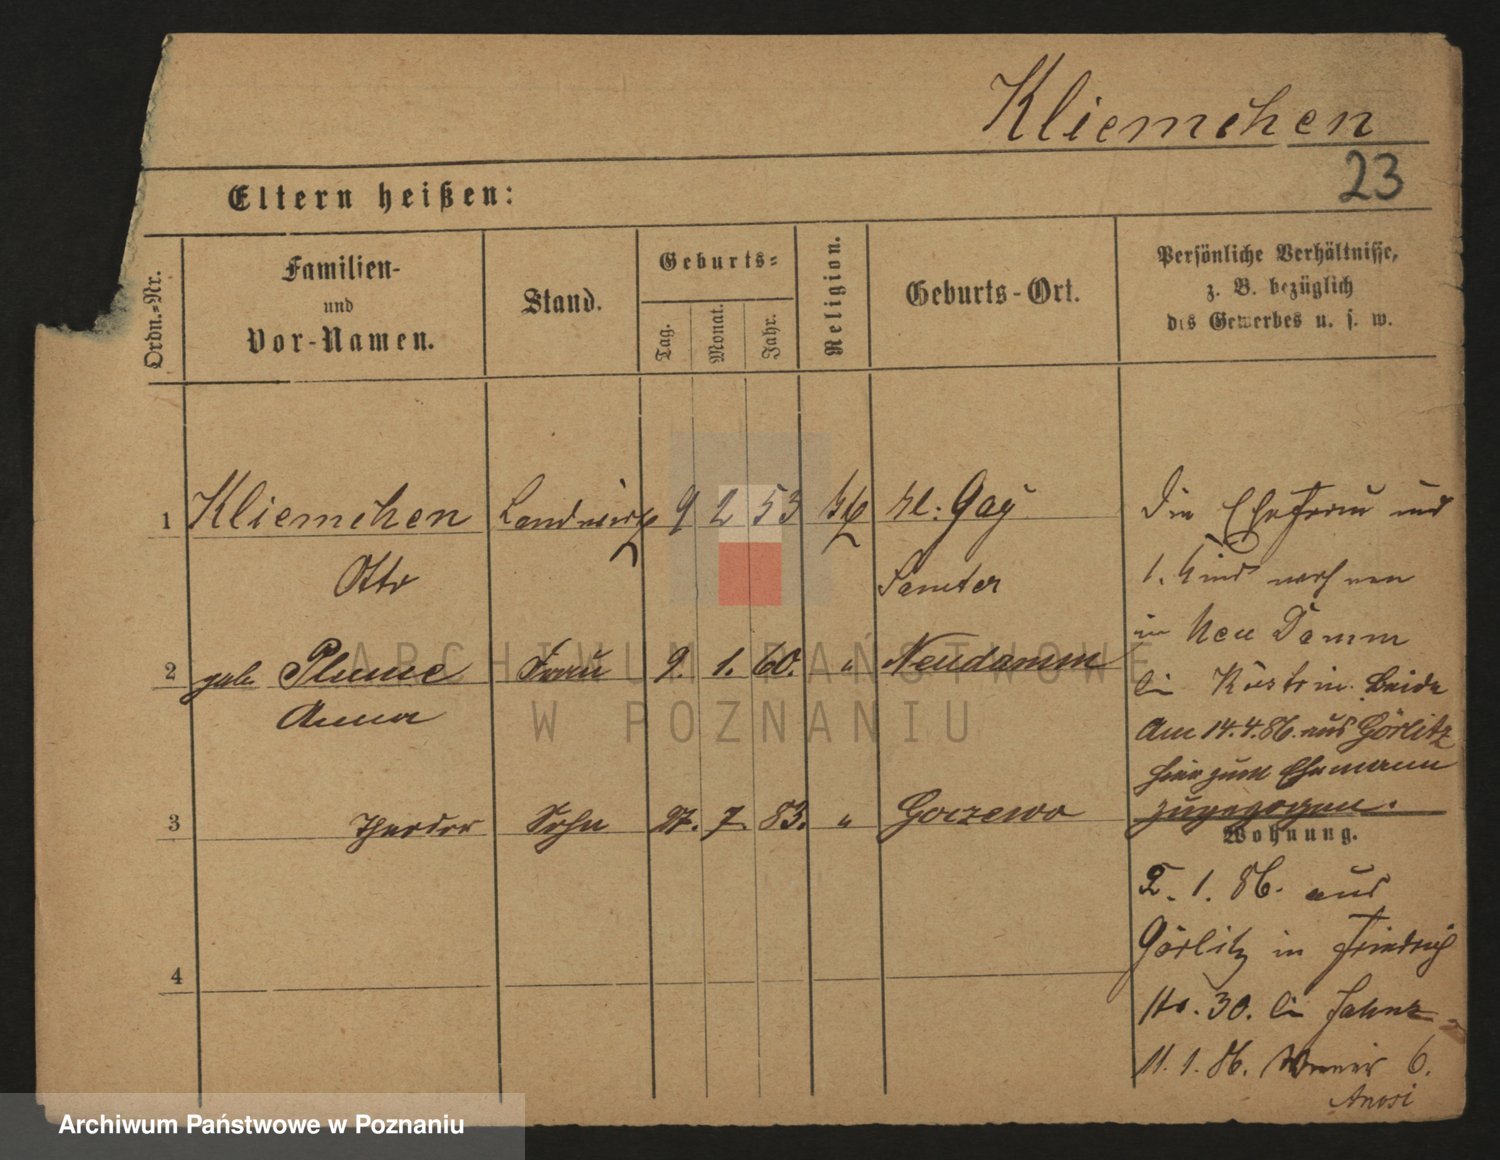 Kliemchen
23
Eltern heißen:
Ordn.-Nr.
Familien-
und
Vor-Namen.
Stand.
Geburts-
Tag.
Monat.
Jahr.
Religion.
Geburts-Ort.
Persönliche Verhältnisse,
z. B. bezüglich
des Gewerbes u. s. w.
1 Kliemchen Landwirth 9 2 53 kl: Gay
Otto Samter
Die Ehefrau und
1. Kind wohnen
in Neu Damm
2 geb. Plume Frau 9. 1. 60. " Neudamm
Anna
bei Küstrin. Beide
Am 14.4.86. aus Görlitz
hier zum Ehemann
zugezogen.
3 Theodor Sohn 27. 7. 83. " Gorzewo
Wohnung.
2. 1. 86. aus
Görlitz in Friedrich
4
No. 30. bei
11. 1. 86. 6.
ARCHIWUM PAŃSTWOWE
W POZNANIU
Archiwum Państwowe w Poznaniu